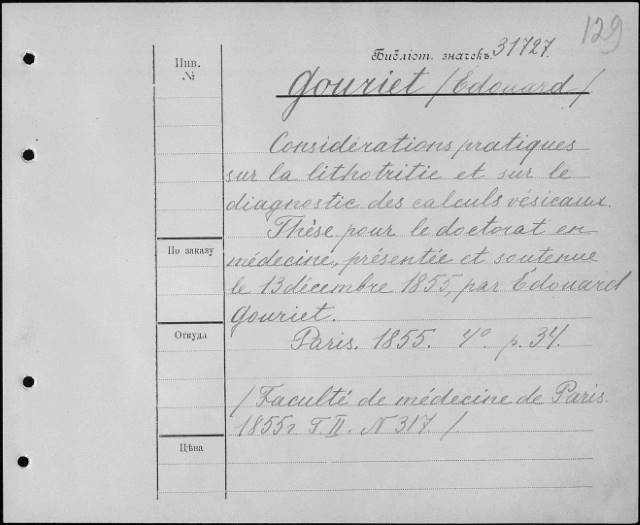 129
Инв.
№
Библіот. значекъ 31727.
Gouriet /Édouard/
Considérations pratiques
sur la lithotritie et sur le
diagnostic des calculs vésicaux.
Thèse pour le doctorat en
médecine, présentée et soutenue
le 13 décembre 1855, par Édouard
Gouriet.
Paris. 1855. 4º. p. 34.
/Faculté de médecine de Paris.
1855 г. T. II. N 317. /
По заказу
Откуда
Цѣна